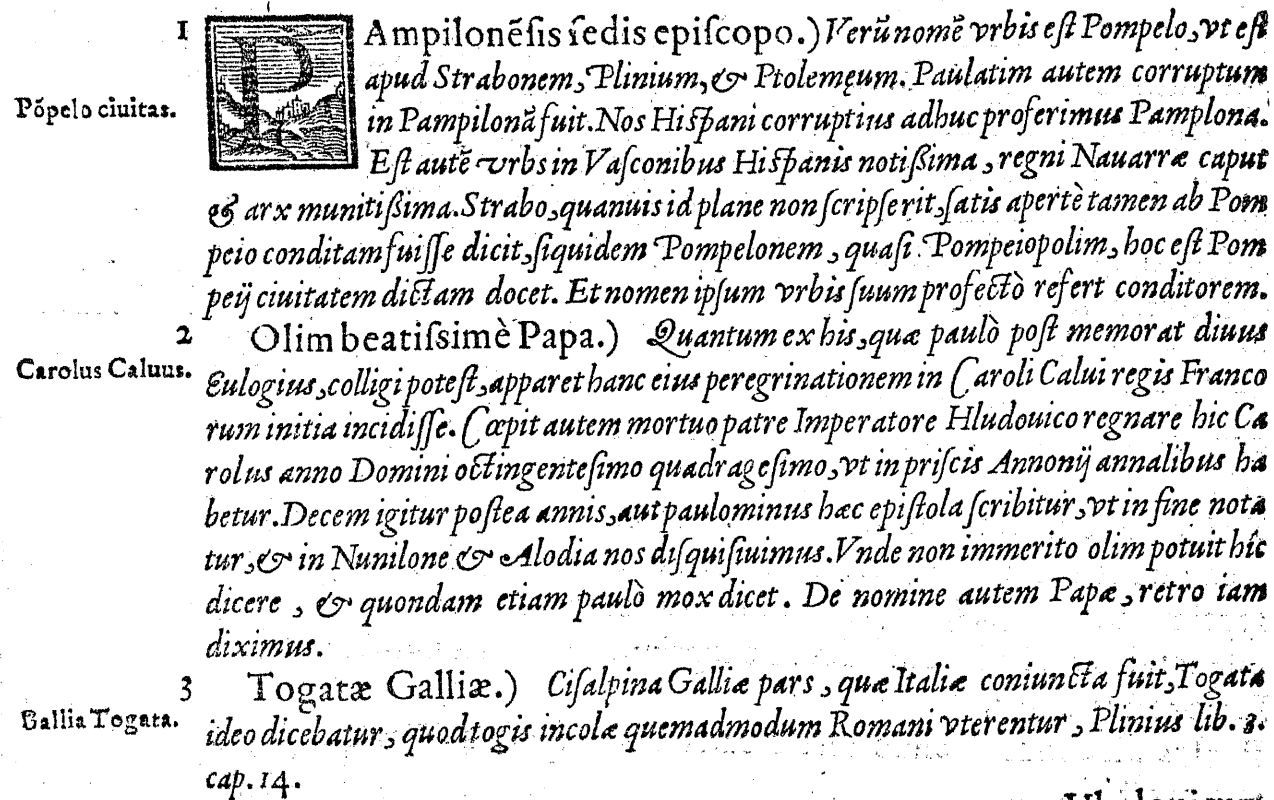 1 PAmpilonẽſis ſedis epiſcopo.) Verũ nomẽ vrbis eſt Pompelo, vt eſt
apud Strabonem, Plinium, & Ptolemęum. Paulatim autem corruptum
Pópelo ciuitas. in Pampilonã fuit. Nos Hiſpani corruptius adhuc proferimus Pamplona.
Eſt autẽ vrbs in Vaſconibus Hiſpanis notißima, regni Nauarræ caput
& arx munitißima. Strabo, quanuis id plane non ſcripſerit, ſatis apertè tamen ab Pom
peio conditam fuiſſe dicit, ſiquidem Pompelonem, quaſi Pompeiopolim, hoc eſt Pom
peij ciuitatem dictam docet. Et nomen ipſum vrbis ſuum profectò refert conditorem.
2 Olim beatiſsimè Papa.) Quantum ex his, quæ paulò poſt memorat diuus
Carolus Caluus. Eulogius, colligi poteſt, apparet hanc eius peregrinationem in Caroli Calui regis Franco
rum initia incidiſſe. Cœpit autem mortuo patre Imperatore Hludouico regnare hic Ca
rolus anno Domini octingenteſimo quadrageſimo, vt in priſcis Annonij annalibus ha
betur. Decem igitur poſtea annis, aut paulominus hæc epiſtola ſcribitur, vt in fine nota
tur, & in Nunilone & Alodia nos diſquiſiuimus. Vnde non immerito olim potuit hîc
dicere, & quondam etiam paulò mox dicet. De nomine autem Papæ, retro iam
diximus.
3 Togatæ Galliæ.) Ciſalpina Galliæ pars, quæ Italiæ coniuncta fuit, Togata
Gallia Togata. ideo dicebatur, quod togis incolæ quemadmodum Romani vterentur, Plinius lib. 3.
cap. 14.